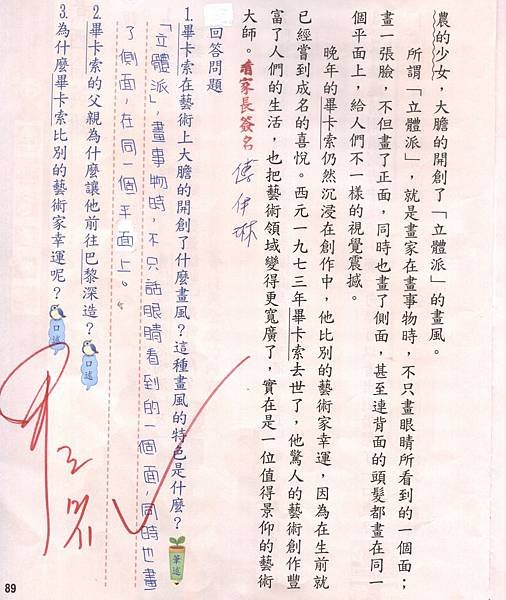 農的少女，大膽的開創了「立體派」的畫風。
所謂「立體派」，就是畫家在畫事物時，不只畫眼睛所看到的一個面；
畫一張臉，不但畫了正面，同時也畫了側面，甚至連背面的頭髮都畫在同一
個平面上，給人們不一樣的視覺震撼。
晚年的畢卡索仍然沉浸在創作中，他比別的藝術家幸運，因為在生前就
已經嘗到成名的喜悅。西元一九七三年畢卡索去世了，他驚人的藝術創作豐
富了人們的生活，也把藝術領域變得更寬廣了，實在是一位值得景仰的藝術
大師。
家長簽名
回答問題
1.畢卡索在藝術上大膽的開創了什麼畫風？這種畫風的特色是什麼？筆述
「立體派」，畫事物時不只話眼睛看到的一個面，同時也畫
了側面，在同一個平面上。
2.畢卡索的父親為什麼讓他前往巴黎深造？口述
3.為什麼畢卡索比別的藝術家幸運呢？口述
89